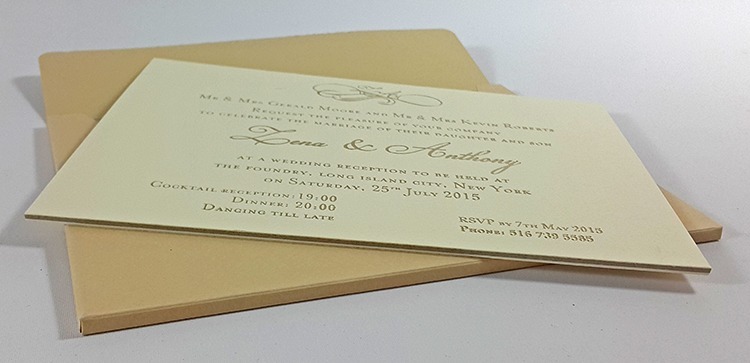 Mr & Mrs Gerald Moore and Mr & Mrs Kevin Roberts
Request the pleasure of your company
to celebrate the marriage of their daughter and son
Zena & Anthony
at a wedding reception to be held at
the Foundry, Long Island City, New York
on Saturday, 25th July 2015
Cocktail reception: 19:00
Dinner: 20:00
Dancing till late
RSVP by 7th May 2015
Phone: 516 739 5585